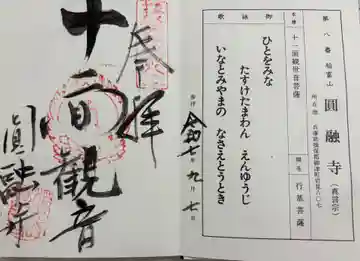 第八番 稲富山
圓融寺(真言宗)
所在地 兵庫県揖保郡御津町岩見八〇七
本尊 十一面観世音菩薩
開基 行基菩薩
御詠歌
ひとをみな
たすけたまわん えんゆうじ
いなとみやまの なさえとうとき
令和七年九月七日
奉拝
十一面観音
圓融寺